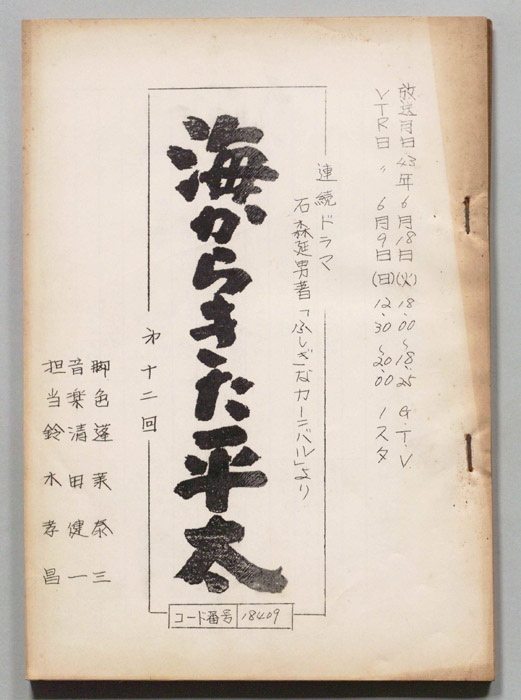 放送月日 43年6月18日(火) 18.00~18.25 G.T.V
VTR日 〃 6月9日(日) 12.30~20.00 1スタ
連続ドラマ
石森延男著「ふしぎなカーニバル」より
海からきた平太
才十二回
脚色 蓬莱泰三
音楽 清田健一
担当 鈴木孝昌
コード番号 18409